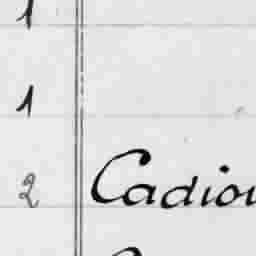 1
1
2 Cadiou